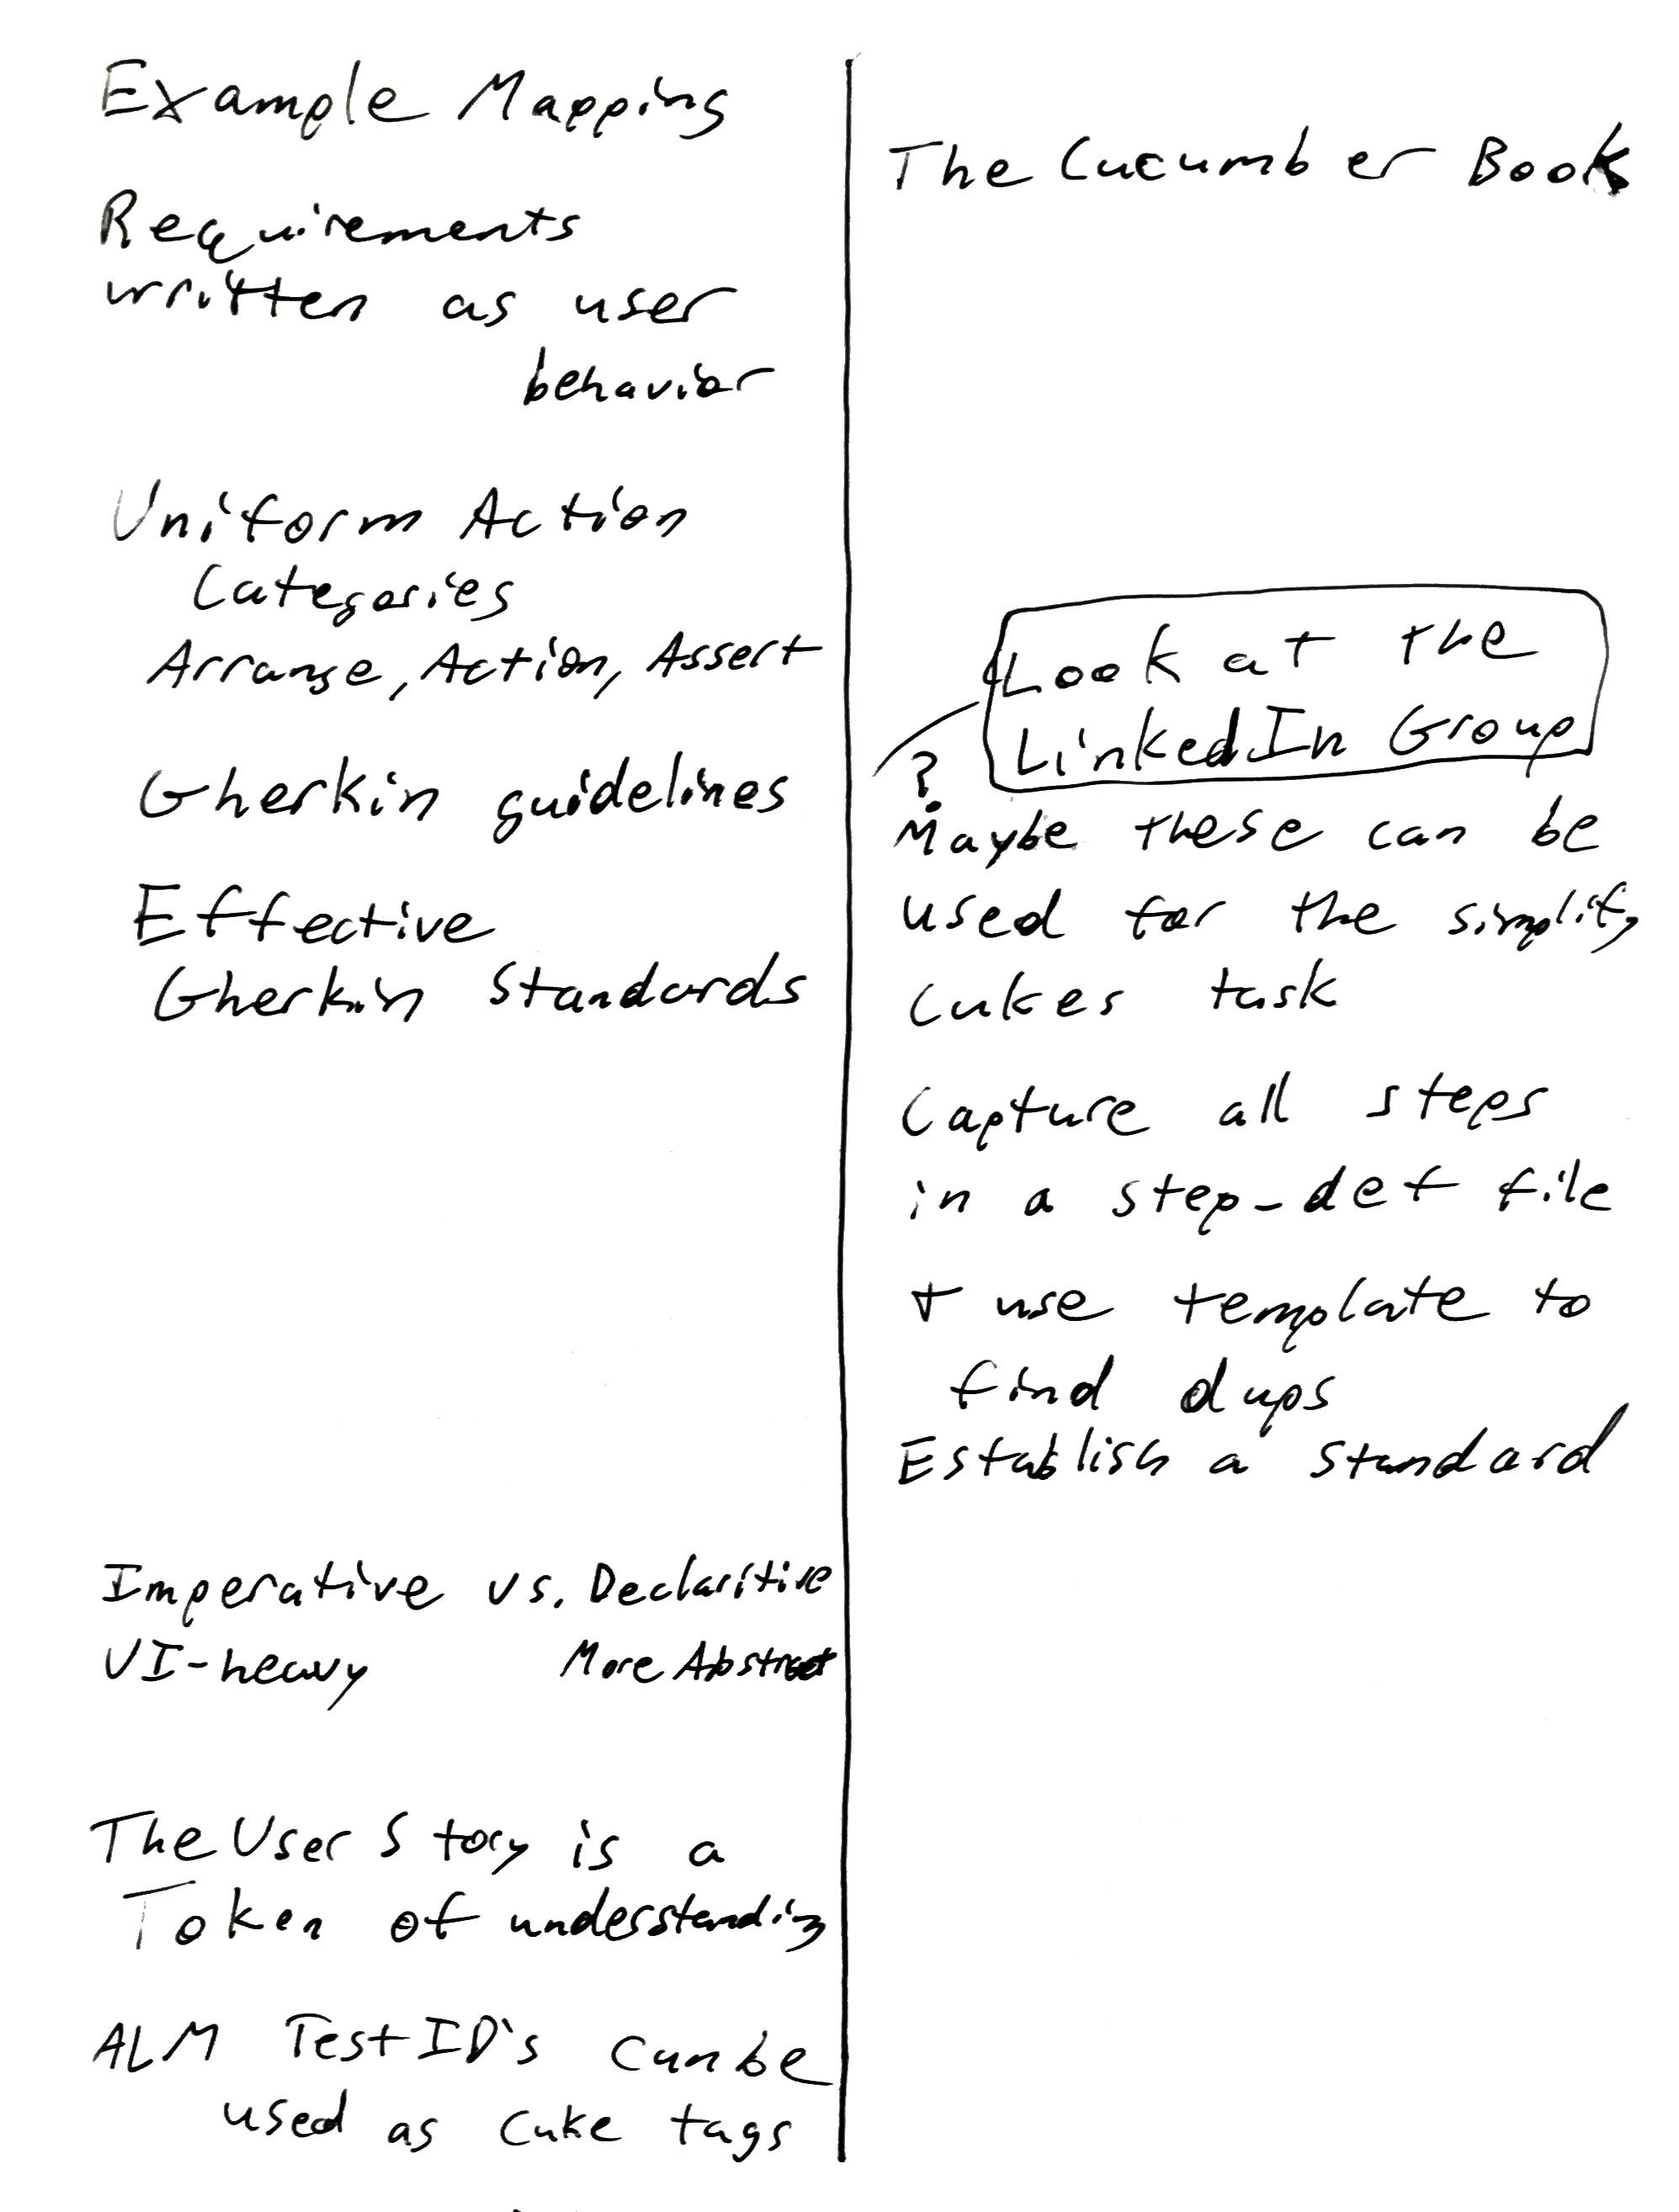 Example Mapping
Requirements
written as user
behavior
Uniform Action
Categories
Arrange, Action, Assert
Gherkin guidelines
Effective
Gherkin Standards
Imperative vs. Declaritive
UI-heavy More Abstract
The User Story is a
Token of understanding
ALM Test ID's can be
used as cuke tags
The Cucumber Book
Look at the
LinkedIn Group
?
Maybe these can be
used for the simplify
cukes task
Capture all steps
in a step-def file
+ use template to
find dups
Establish a standard